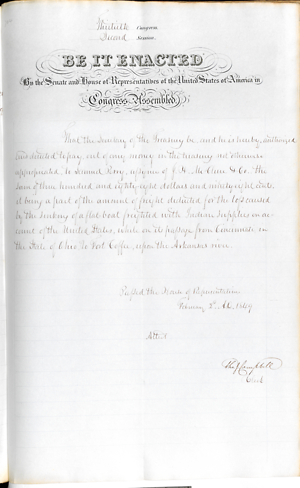 Thirtieth Congress
Second Session
BE IT ENACTED
By the Senate and House of Representatives of the United States of America in
Congress Assembled
That the Secretary of the Treasury be and he is hereby authorized
and directed to pay, out of any money in the treasury not otherwise
appropriated, to Samuel Perry, assignee of J. & Co. the
sum of three hundred and eighty eight dollars and ninety eight cents,
it being a part of the amount of freight deducted for the loss caused
by the sinking of a flat boat freighted with Indian supplies on ac-
count of the United States, while on the passage from Cincinnati, in
the State of Ohio to Fort Coffee, upon the Arkansas river.
Passed the House of Representatives
February 1849
Attest
Campbell
Clerk